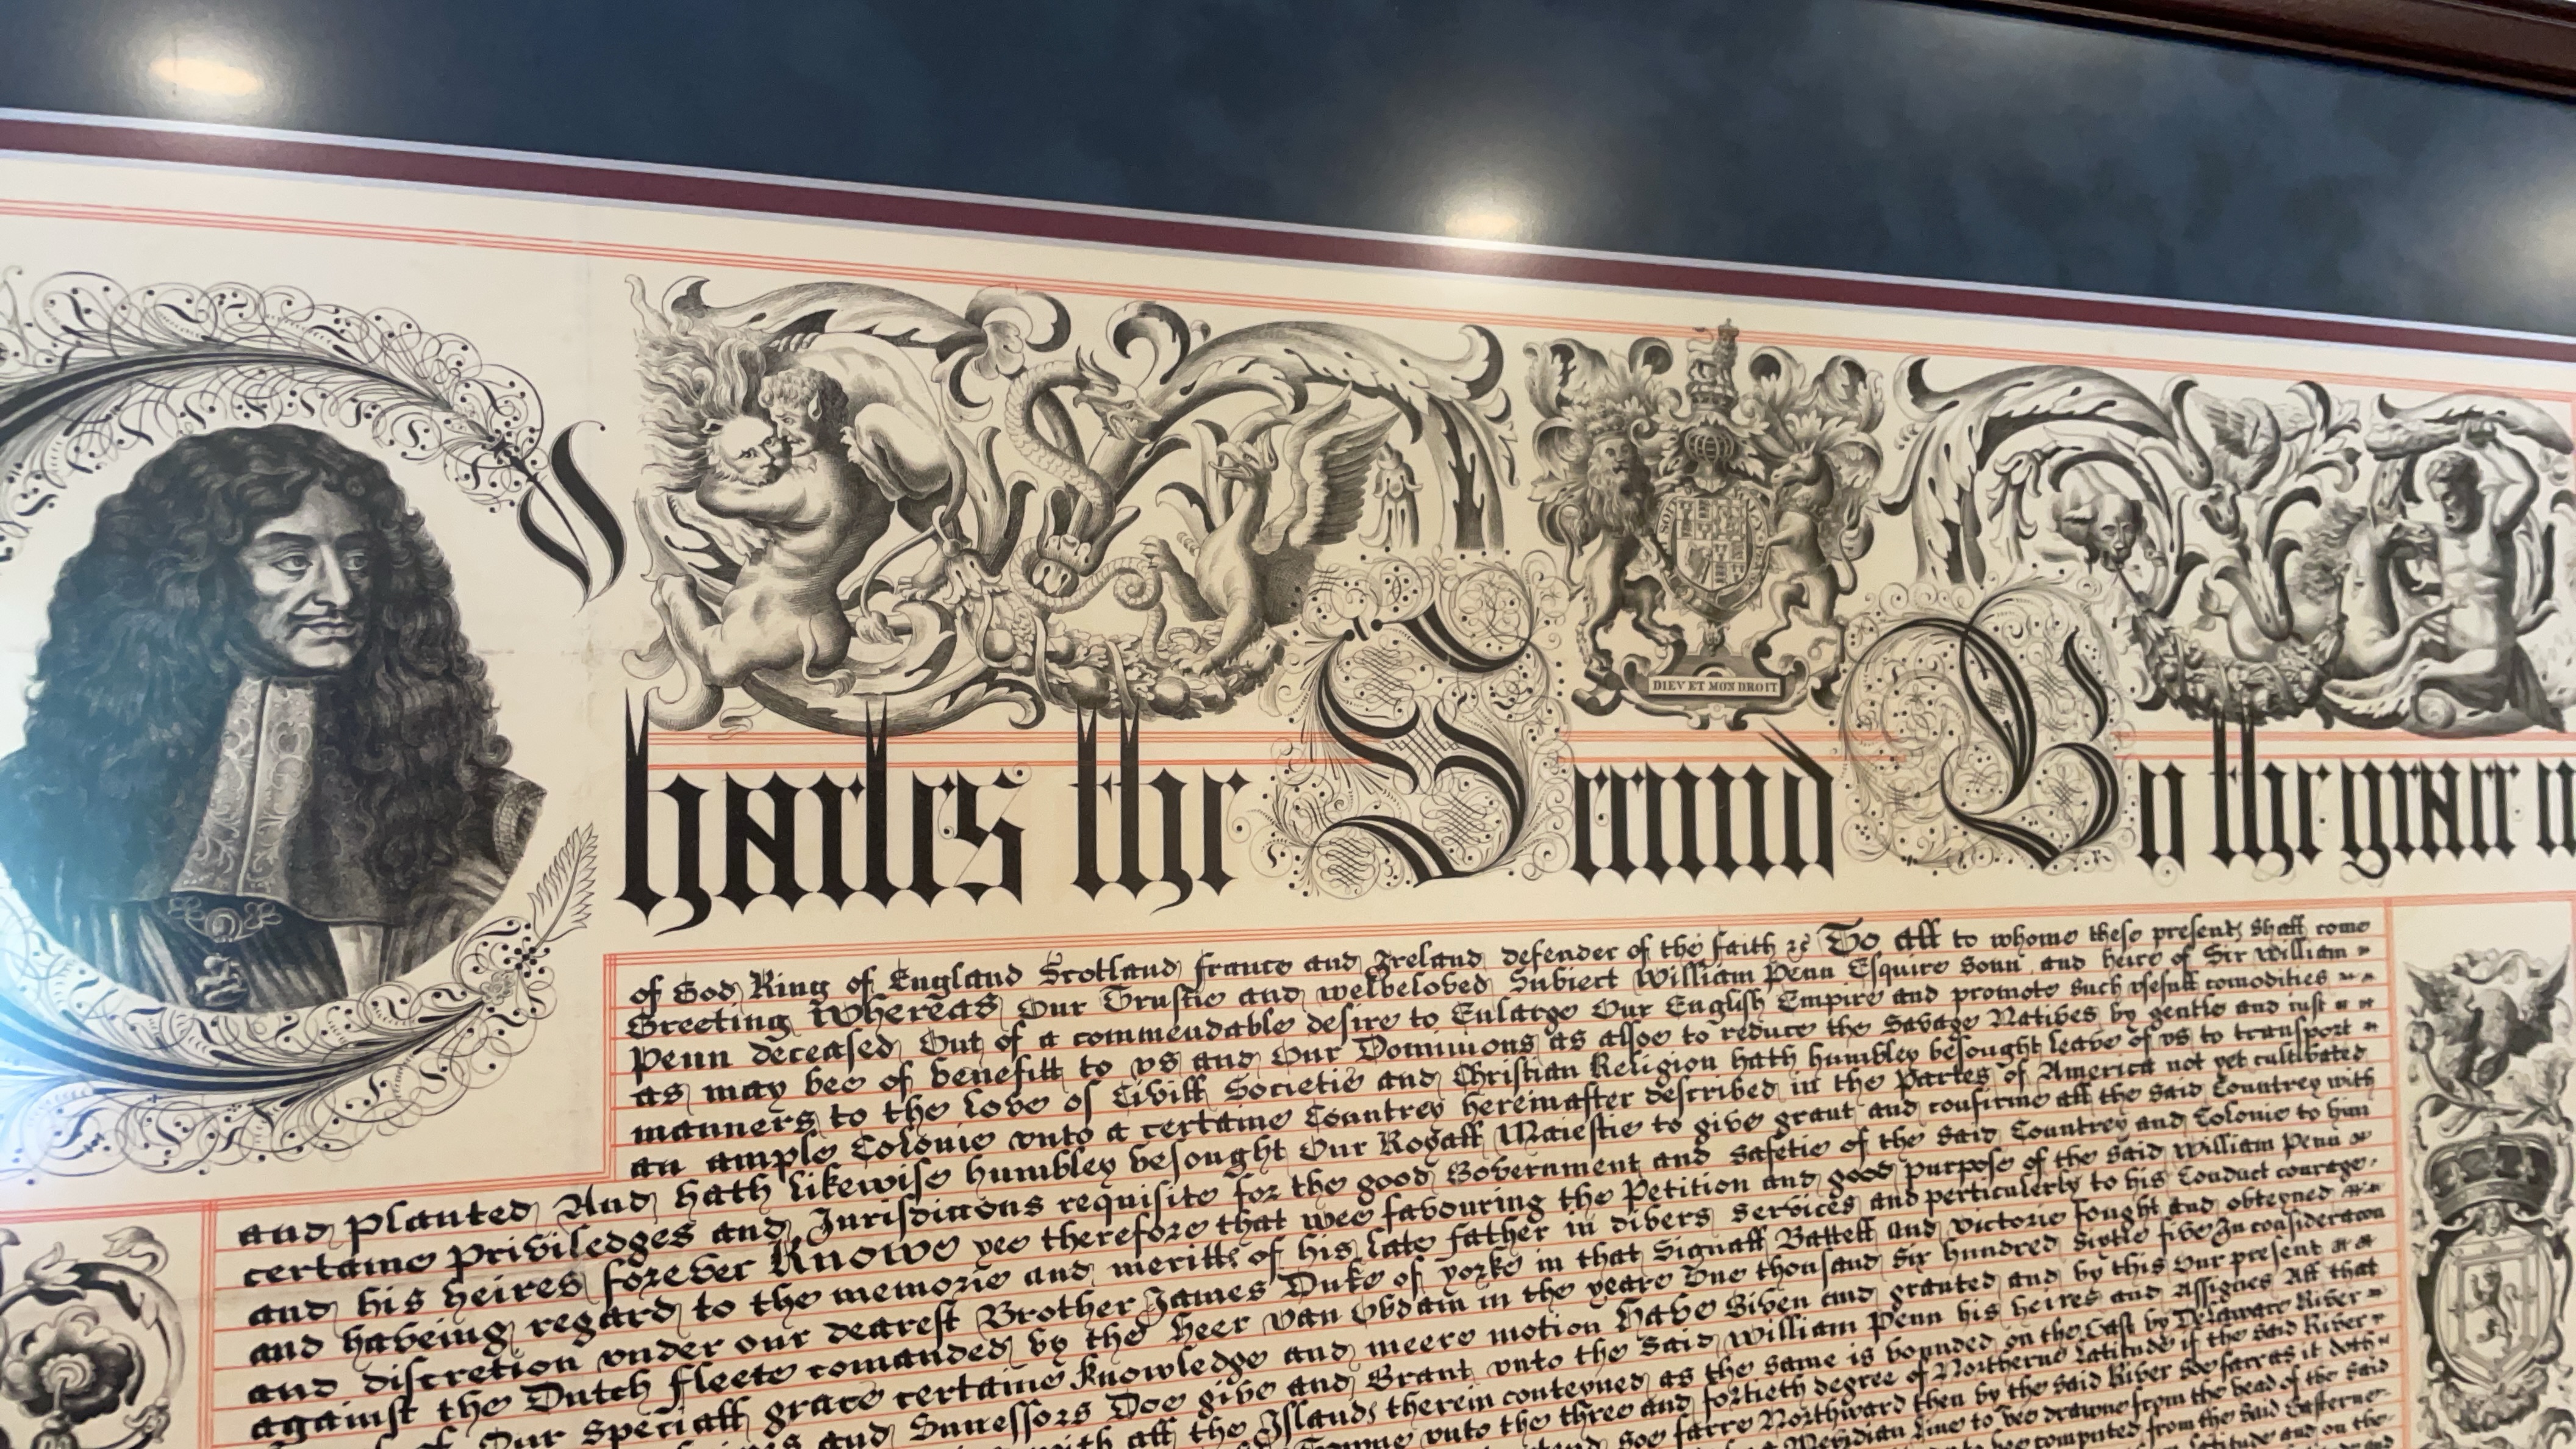 DIEV ET MON DROIT
Charles the Second By the grace
of God King of England Scotland france and Ireland defender of the faith &c To all to whome these presents shall come
Greeting Whereas Our Trustie and welbeloved Subiect William Penn Esquire sonn and heire of Sir William
Penn deceased Out of a commendable desire to Enlarge Our English Empire and promote such vsefull comodities
as may bee of benefitt to vs and Our Dominions as alsoe to reduce the Savage Natives by gentle and iust
manners to the Love of Civill Societie and Christian Religion hath humbley besought leave of vs to transport
an ample Colonie vnto a certaine Countrey hereinafter described in the Partes of America not yet cultivated
and planted And hath likewise humbley besought Our Royall Maiestie to give grant and confirme all the said Countrey with
certaine priviledges and Jurisdiccons requisite for the good Government and safetie of the said Countrey and Colonie to him
and his heires forever Knowe yee therefore that wee favouring the Petition and good purpose of the said William Penn
and haveing regard to the memorie and meritts of his late father in divers services and perticulerly to his Conduct courage
and discretion vnder our dearest Brother James Duke of yorke in that Signall Battell and victorie fought and obteyned
against the Dutch fleete comanded by the Heer van Obdam in the yeare One thousand six hundred sixtie five In consideracon
Our speciall grace certaine knowledge and meere motion Have Given and granted and by this Our present
and Successors Doe give and Grant vnto the said William Penn his heires and Assignes All that
all the Islands therein conteyned as the same is bounded on the East by Delaware River
vnto the three and fortieth degree of Northerne Latitude if the said River
soe farre Northward then by the said River soe farr as it doth
Meridian Line to bee drawne from the head of the said
to bee computed from the said Easterne
Latitude and on the